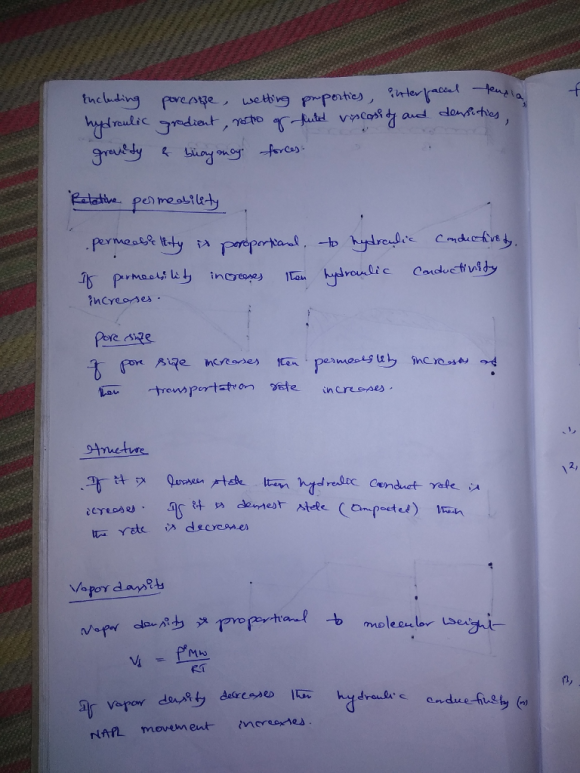 including pore size, wetting properties, interfacial tension,
hydraulic gradient, ratio of fluid viscosity and densities,
gravity & buoyancy forces.
Relative permeability
. permeability is proportional to hydraulic conductivity.
If permeability increases then hydraulic conductivity
increases.
Pore size
If pore size increases then permeability increases and
then transportation rate increases.
Structure
. If it is loosen state then hydraulic conduct rate is
icreases. If it is densest state (compacted) then
the rate is decreases
Vapor density
Vapor density is proportional to molecular weight
= P°MW / RT
If vapor density decreases then hydraulic conductivity (or)
NAPL movement increases.
1,
2,